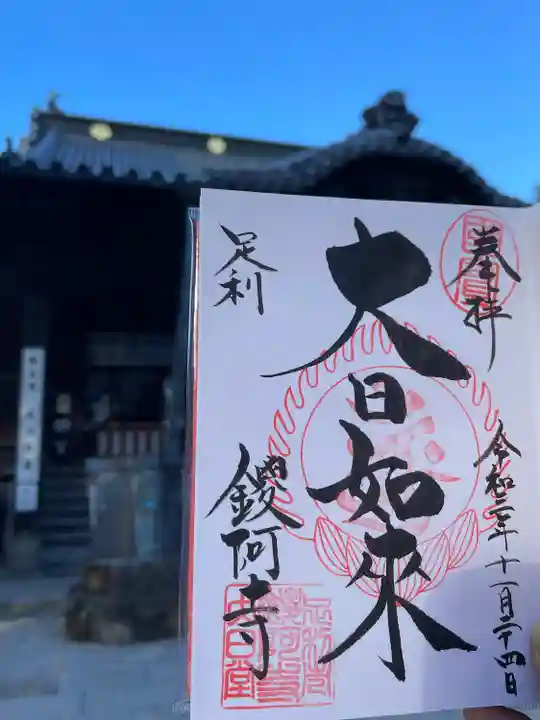 奉拝
令和二年十一月二十四日
大日如來
足利
鑁阿寺